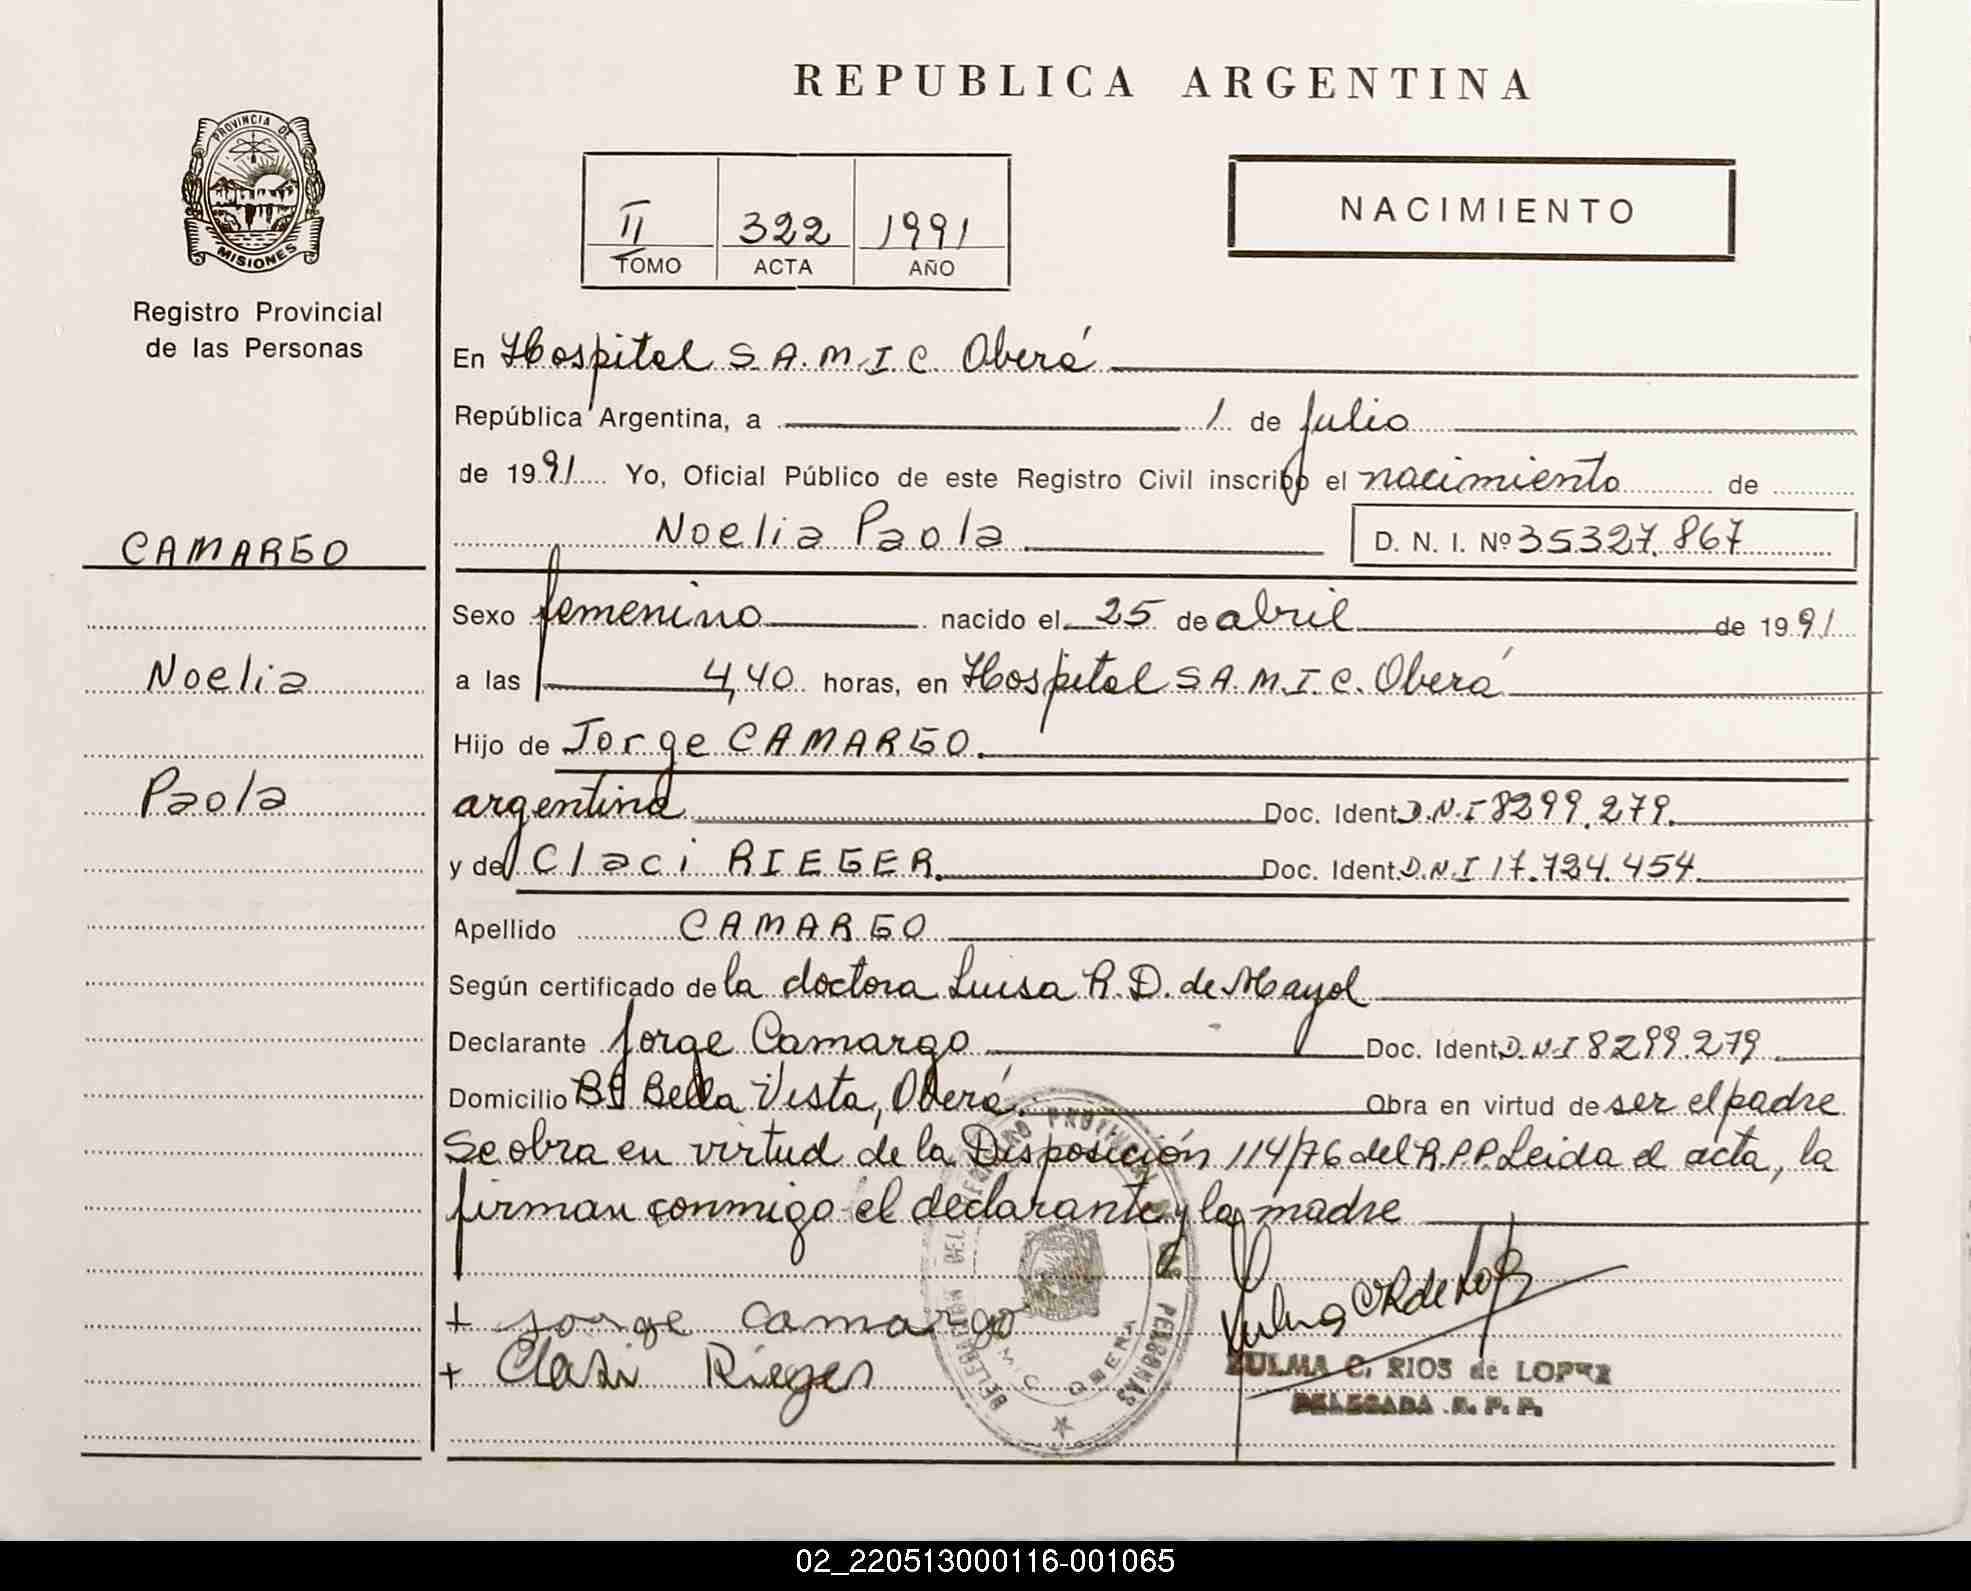 REPUBLICA ARGENTINA
PROVINCIA DE
MISIONES
Registro Provincial
de las Personas
II 322 1991
TOMO ACTA AÑO
NACIMIENTO
CAMARGO
Noelia
Paola
En Hospital S.A.M.I.C. Oberá
República Argentina, a 1 de Julio
de 1991 Yo, Oficial Público de este Registro Civil inscribo el nacimiento de
Noelia Paola D. N. I. Nº 35327.867
Sexo femenino nacido el 25 de abril de 1991
a las 4,40 horas, en Hospital S.A.M.I.C. Oberá
Hijo de Jorge CAMARGO
argentina Doc. Ident. D.N.I 8299.279.
y de Claci RIEGER. Doc. Ident. D.N.I 17.724.454
Apellido CAMARGO
Según certificado de la doctora Luisa R. D. de Mayol
Declarante Jorge Camargo Doc. Ident. D.N.I 8299.279
Domicilio Bº Bella Vista, Oberá. Obra en virtud de ser el padre
Se obra en virtud de la Disposición 114/76 del R.P.P. Leida el acta, la
firman conmigo el declarante y la madre
+ Jorge Camargo
+ Clasi Rieger
ZULMA C. RIOS de LOPEZ
DELEGADA R. P. P.
02_220513000116-001065